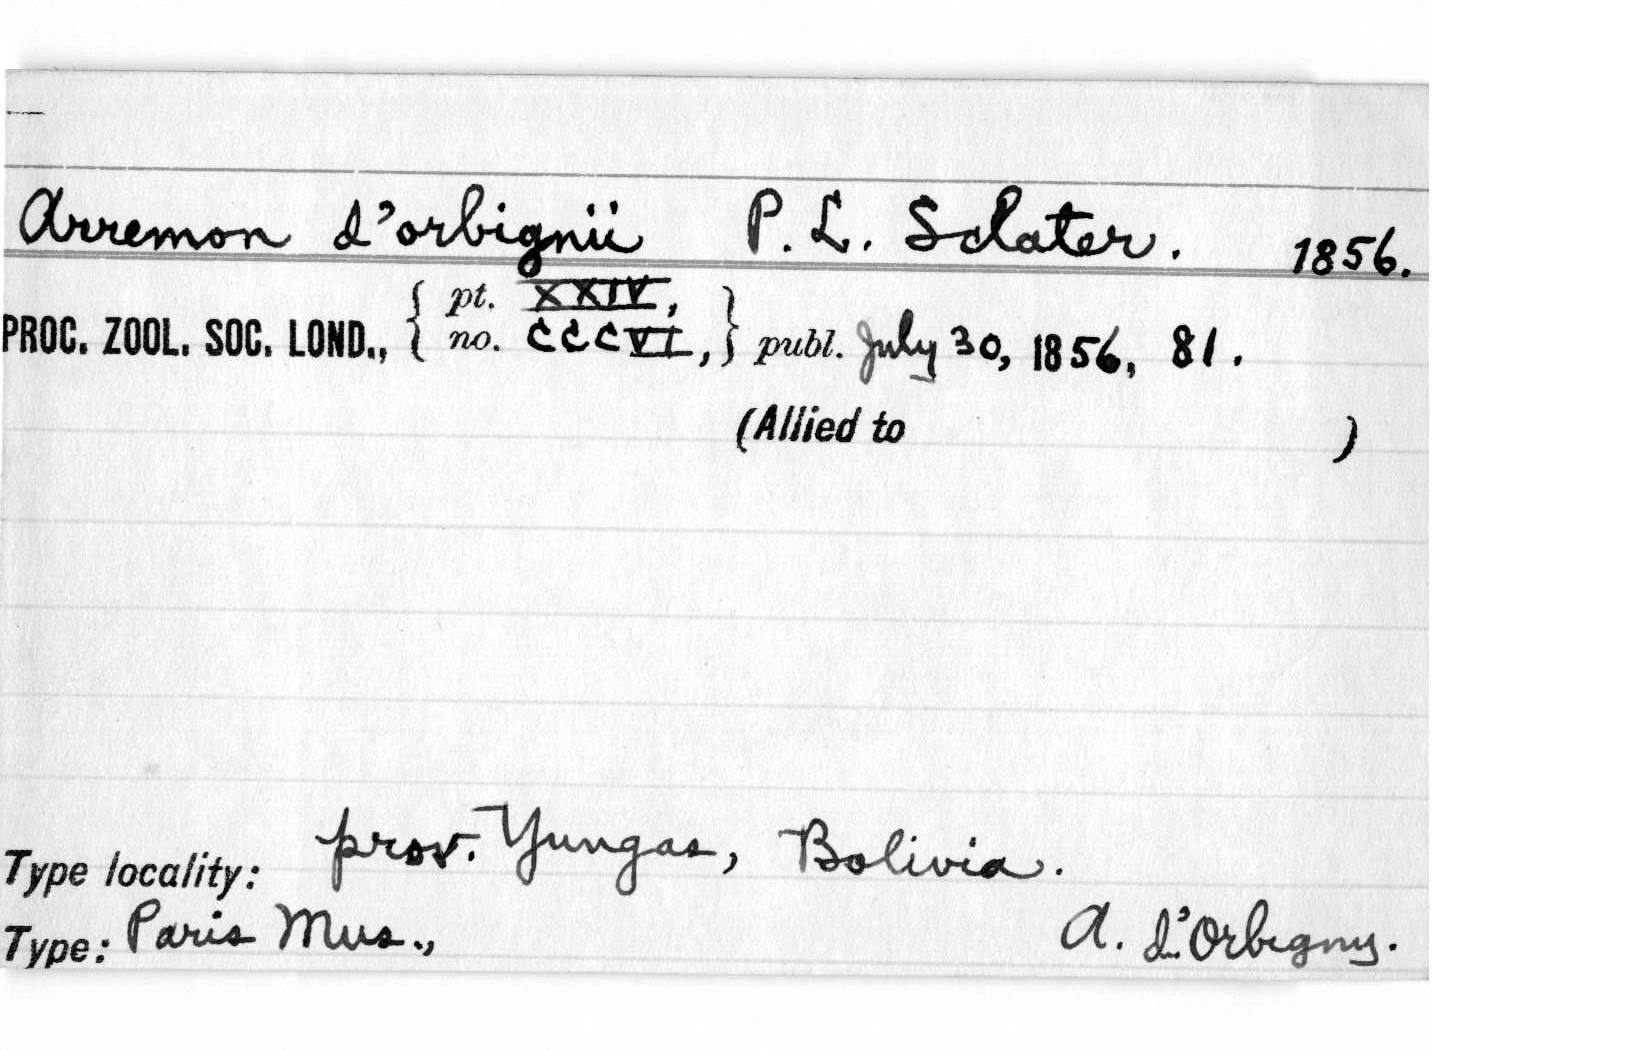 Arremon d'orbignii P. L. Sclater. 1856.
PROC. ZOOL. SOC. LOND., { pt. XXIV, no. CCCVI, } publ. July 30, 1856, 81.
(Allied to )
Type locality: prov. Yungas, Bolivia.
Type: Paris Mus., A. d'Orbigny.